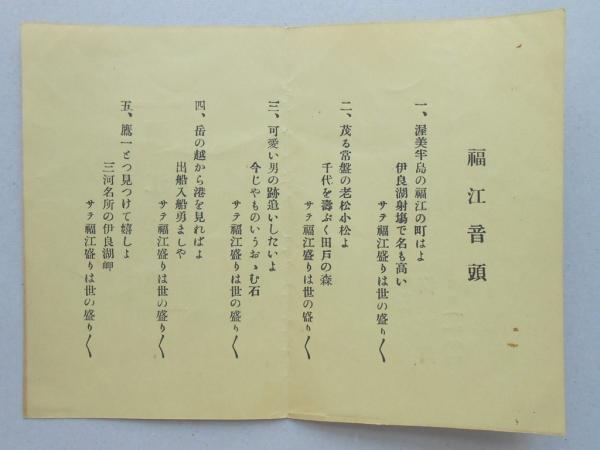 福江音頭
一、渥美半島の福江の町はよ
伊良湖射場で名も高い
サテ福江盛りは世の盛り〱
二、茂る常盤の老松小松よ
千代を壽ぶく田戸の森
サテ福江盛りは世の盛り〱
三、可愛い男の跡追いしたいよ
今じやものいうおゝむ石
サテ福江盛りは世の盛り〱
四、岳の越から港を見ればよ
出船入船勇ましや
サテ福江盛りは世の盛り〱
五、鷹一とつ見つけて嬉しよ
三河名所の伊良湖岬
サテ福江盛りは世の盛り〱